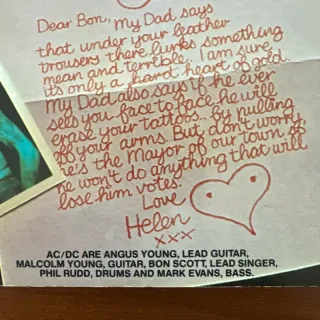 Dear Bon, my Dad says
that under your leather
trousers there lurks something
mean and terrible. I am sure
its only a hard heart of gold.
My Dad also says if he ever
sees you face to face he will
erase your tattoos.. by pulling
off your arms. But don't worry,
he's the Mayor of our town &
he won't do anything that will
lose him votes.
Love
Helen
xxx
AC/DC ARE ANGUS YOUNG, LEAD GUITAR,
MALCOLM YOUNG, GUITAR, BON SCOTT, LEAD SINGER,
PHIL RUDD, DRUMS AND MARK EVANS, BASS.